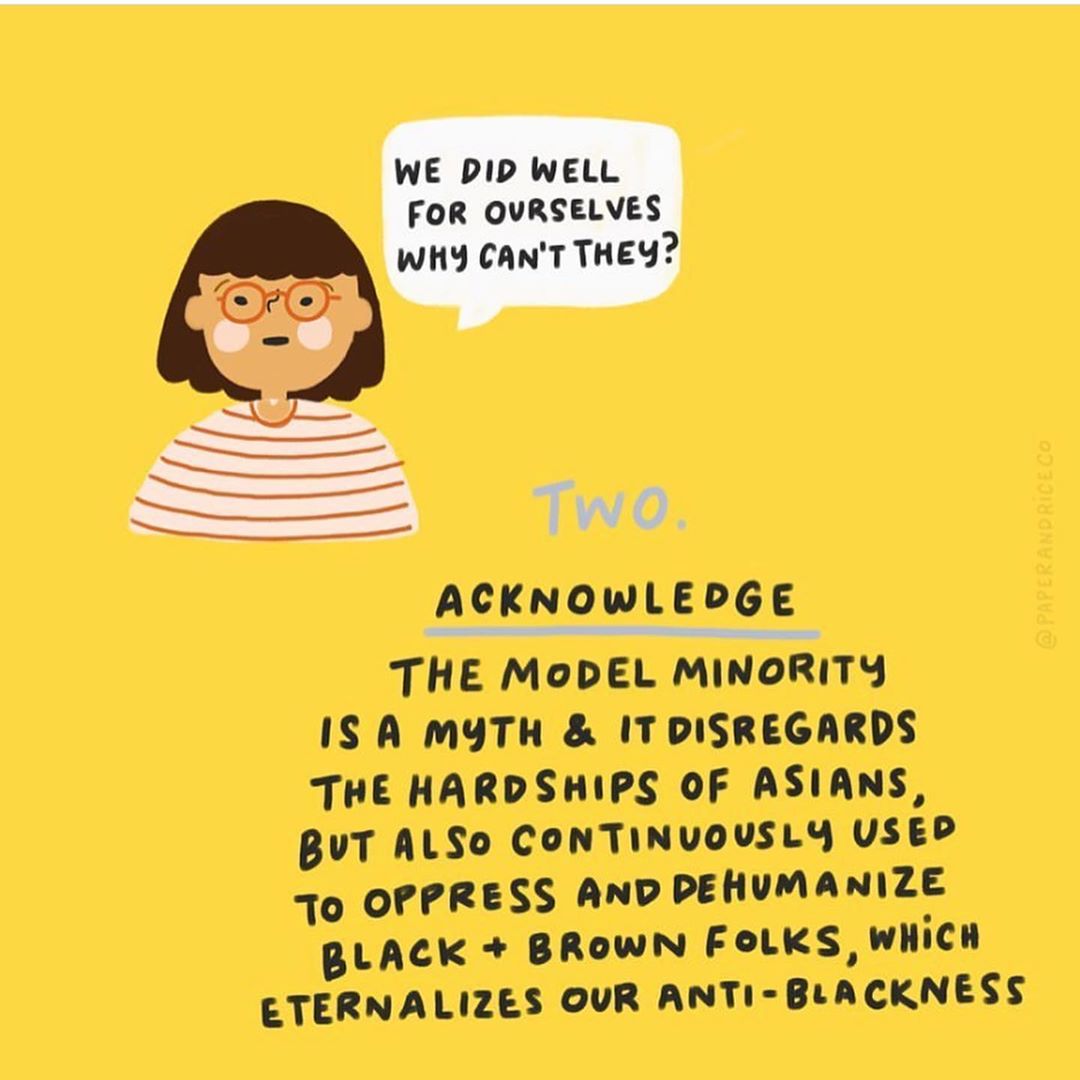 WE DID WELL
FOR OURSELVES
WHY CAN'T THEY?
TWO.
ACKNOWLEDGE
THE MODEL MINORITY
IS A MYTH & IT DISREGARDS
THE HARDSHIPS OF ASIANS,
BUT ALSO CONTINUOUSLY USED
TO OPPRESS AND DEHUMANIZE
BLACK + BROWN FOLKS, WHICH
ETERNALIZES OUR ANTI-BLACKNESS
@PAPERANDRICECO